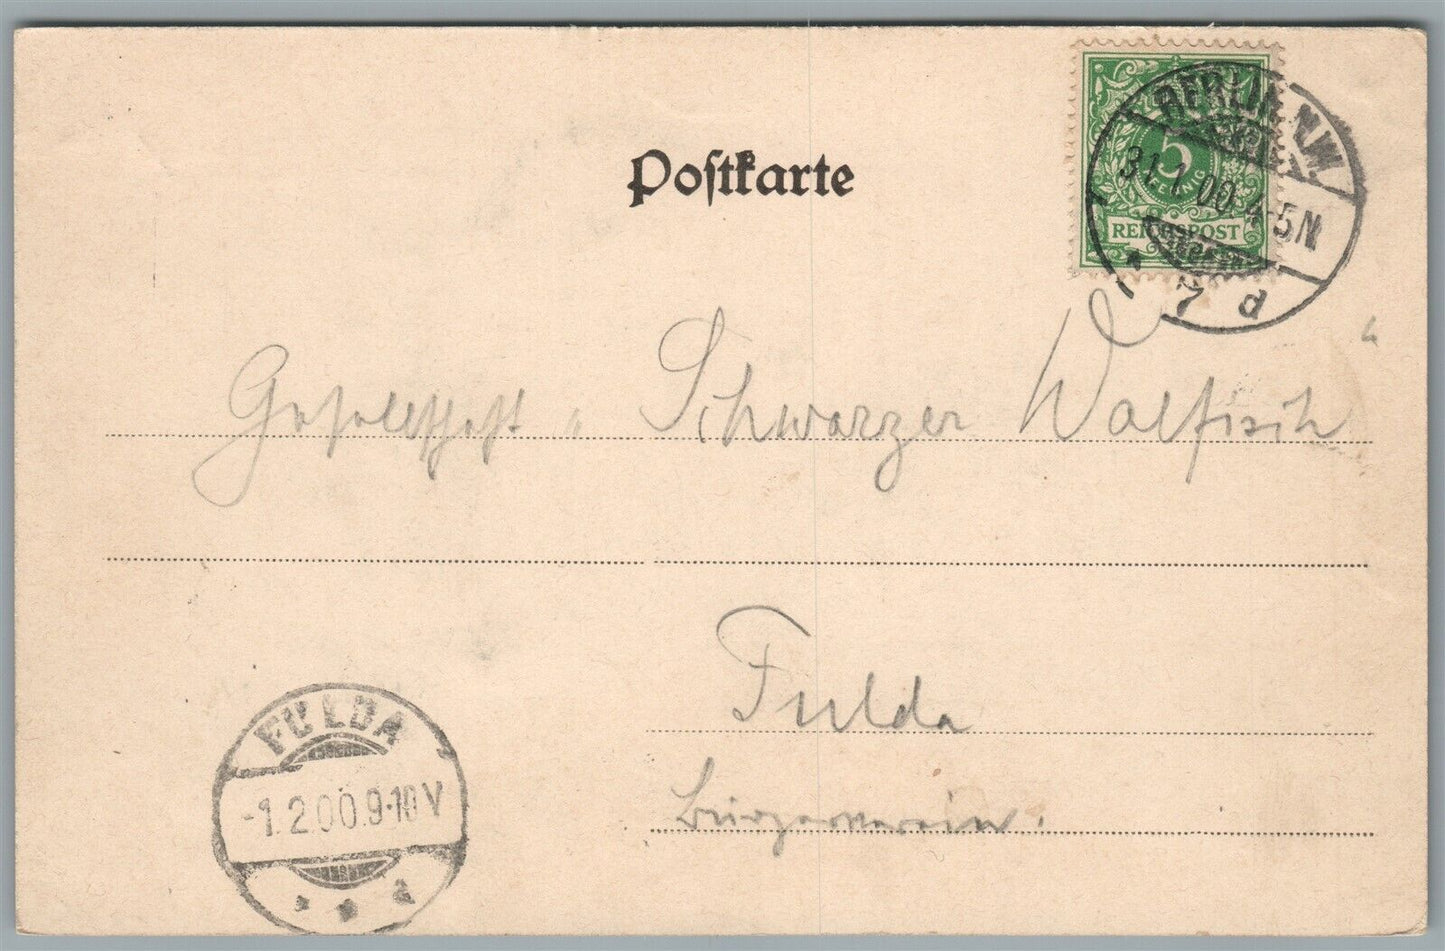 Postkarte
BERLIN N.W.
5
PFENNIG
31.1.00.4-5N
REICHSPOST
7 d
Gesellschaft „Schwarzer Walfisch“
Fulda
Bürgerverein.
FULDA
-1.2.00.9-10V
* * a